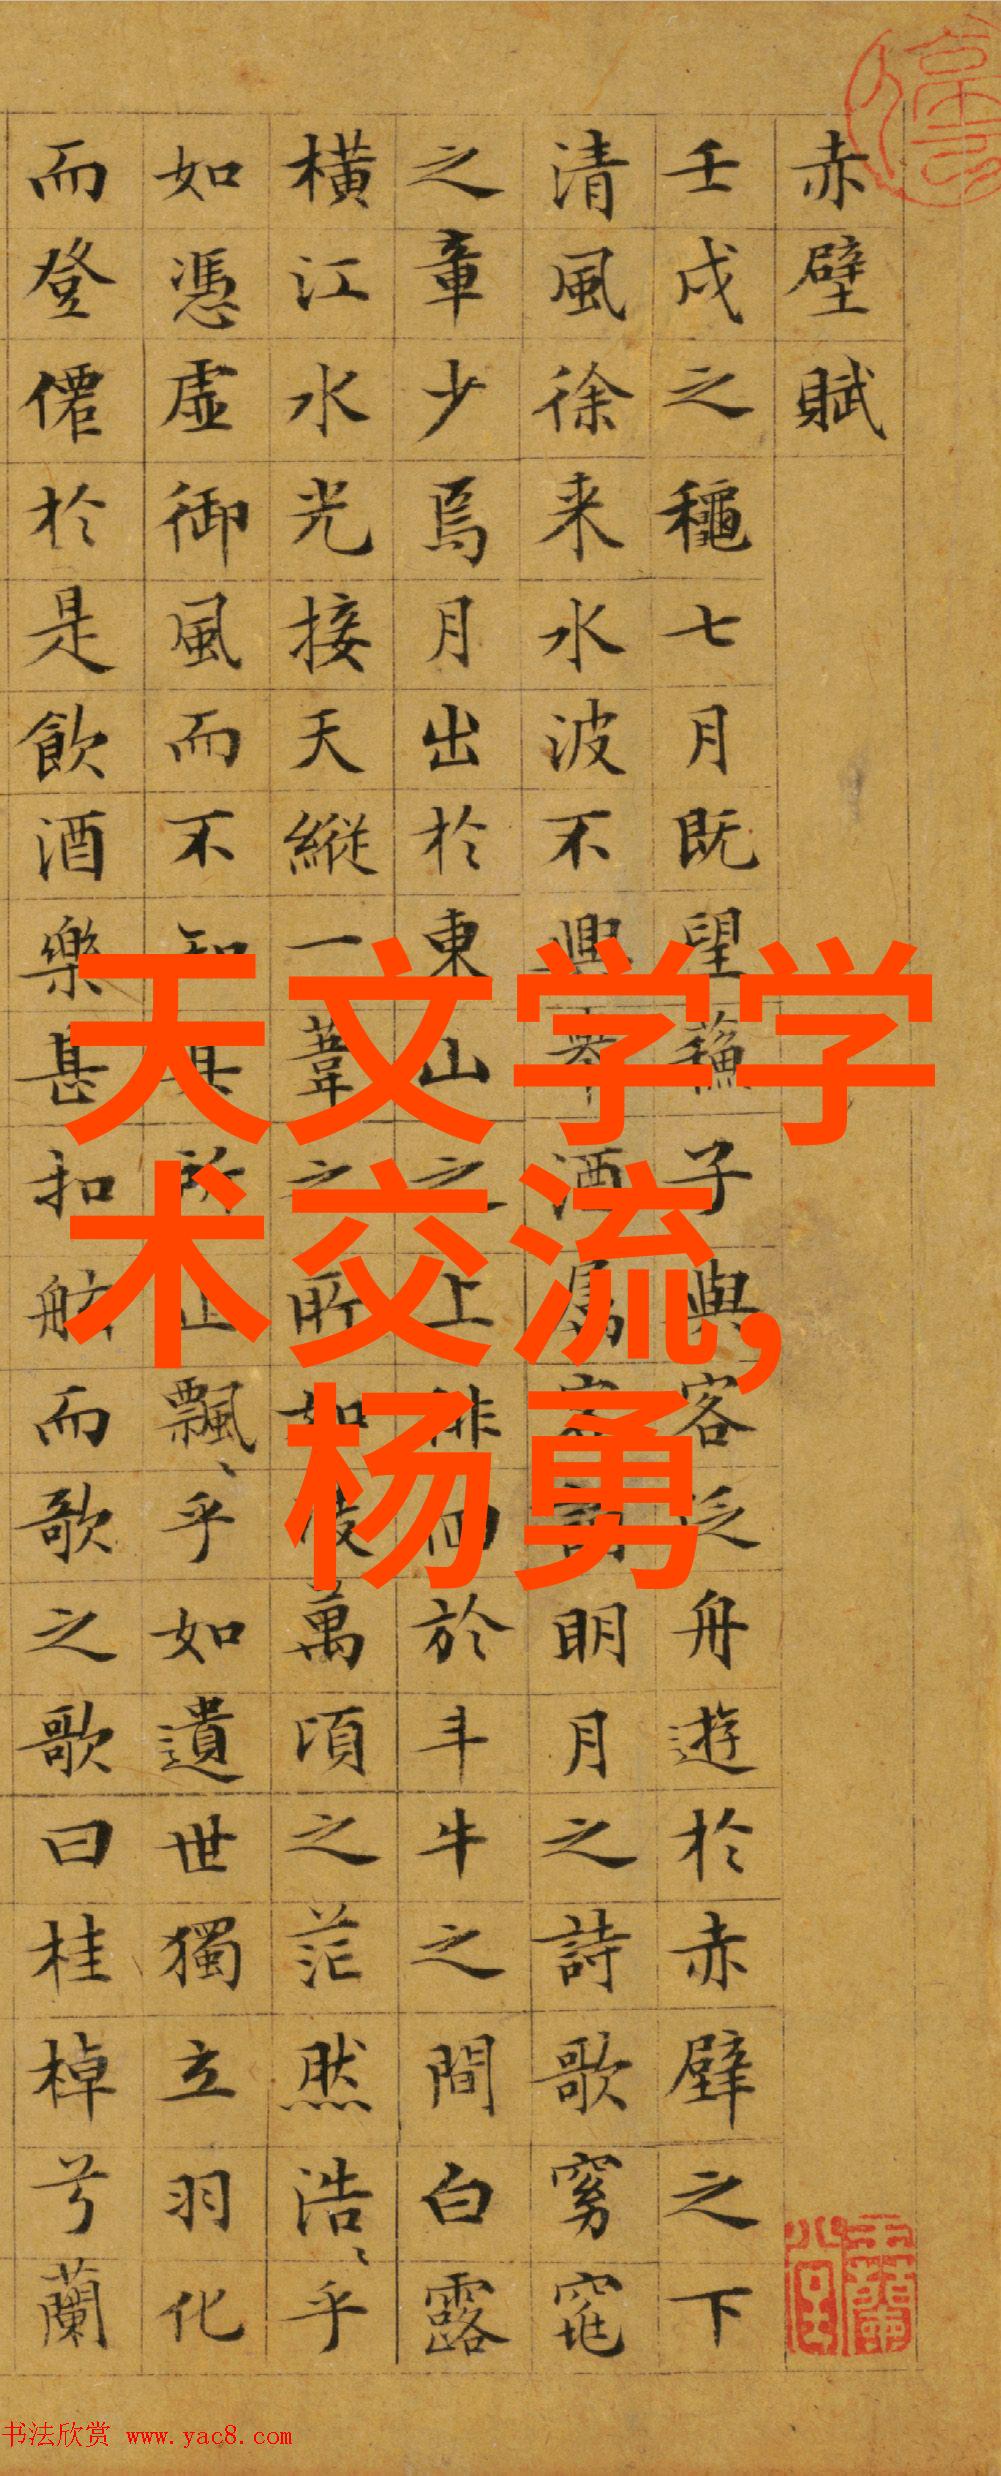 赤壁賦
壬戌之穐七月既望蘓子與客泛舟遊於赤壁之下
清風徐来水波不興舉酒屬客誦明月之詩歌窈窕
之章少焉月出於東山之上徘徊於斗牛之間白露
橫江水光接天縱一葦之所如陵萬頃之茫然浩〻乎
如憑虛御風而不知其所止飄〻乎如遺世獨立羽化
而登僊於是飲酒樂甚扣舷而歌之歌曰桂棹兮蘭
天文学学
术交流,
杨勇
书法欣赏 www.yac8.com